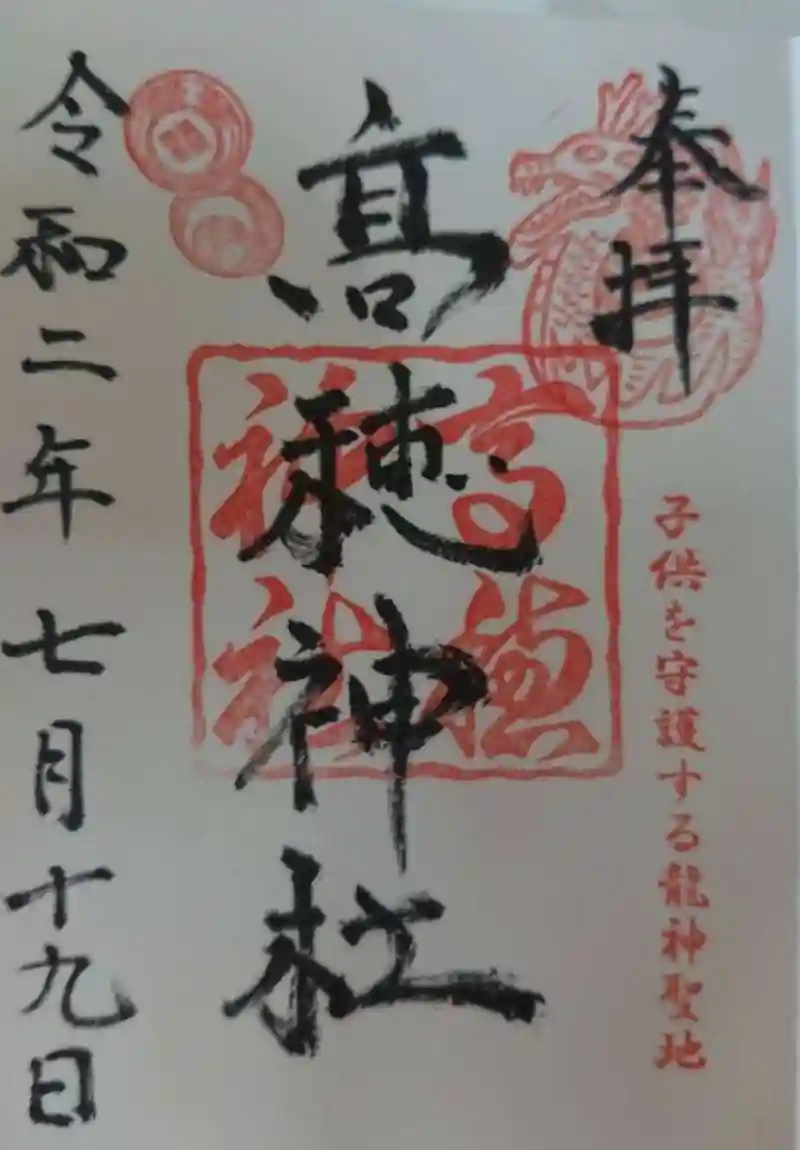 奉拝
子供を守護する龍神聖地
高穂神社
高穂
神社
令和二年七月十九日